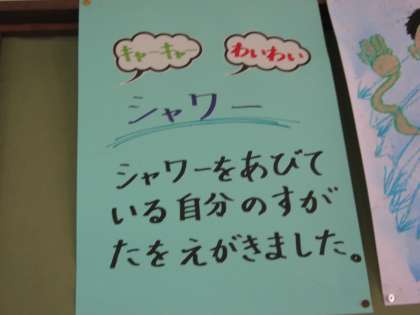 キャーキャー
わいわい
シャワー
シャワーをあびて
いる自分のすが
たをえがきました。